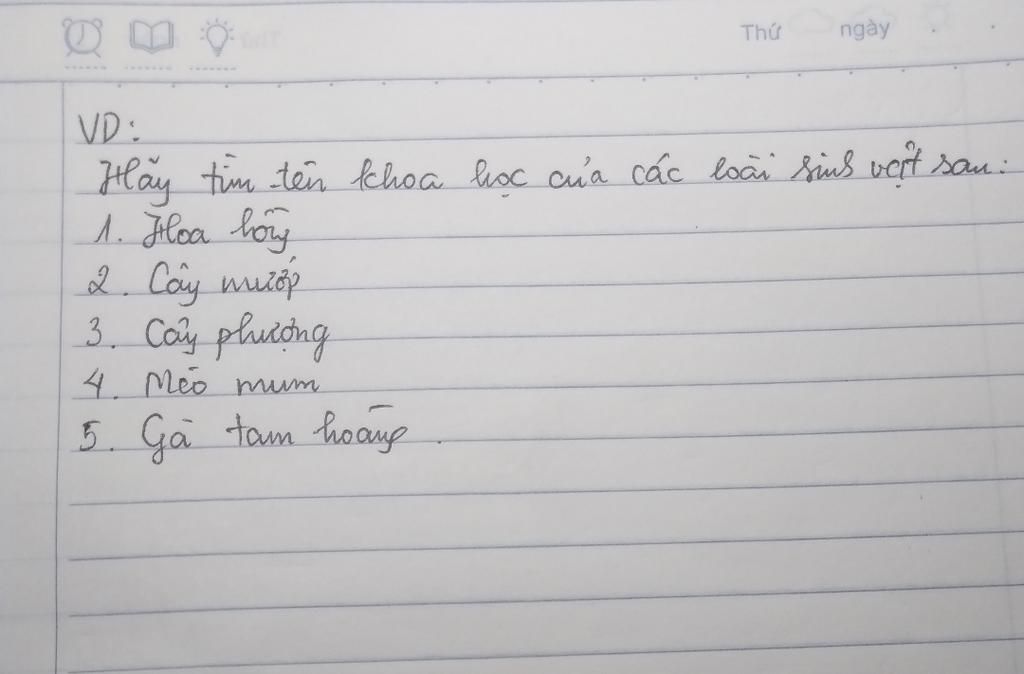 Thứ ngày
VD:
Hãy tìm tên khoa học của các loài sinh vật sau:
1. Hoa hồng
2. Cây mướp
3. Cây phượng
4. Mèo mum
5. Gà tam hoàng.